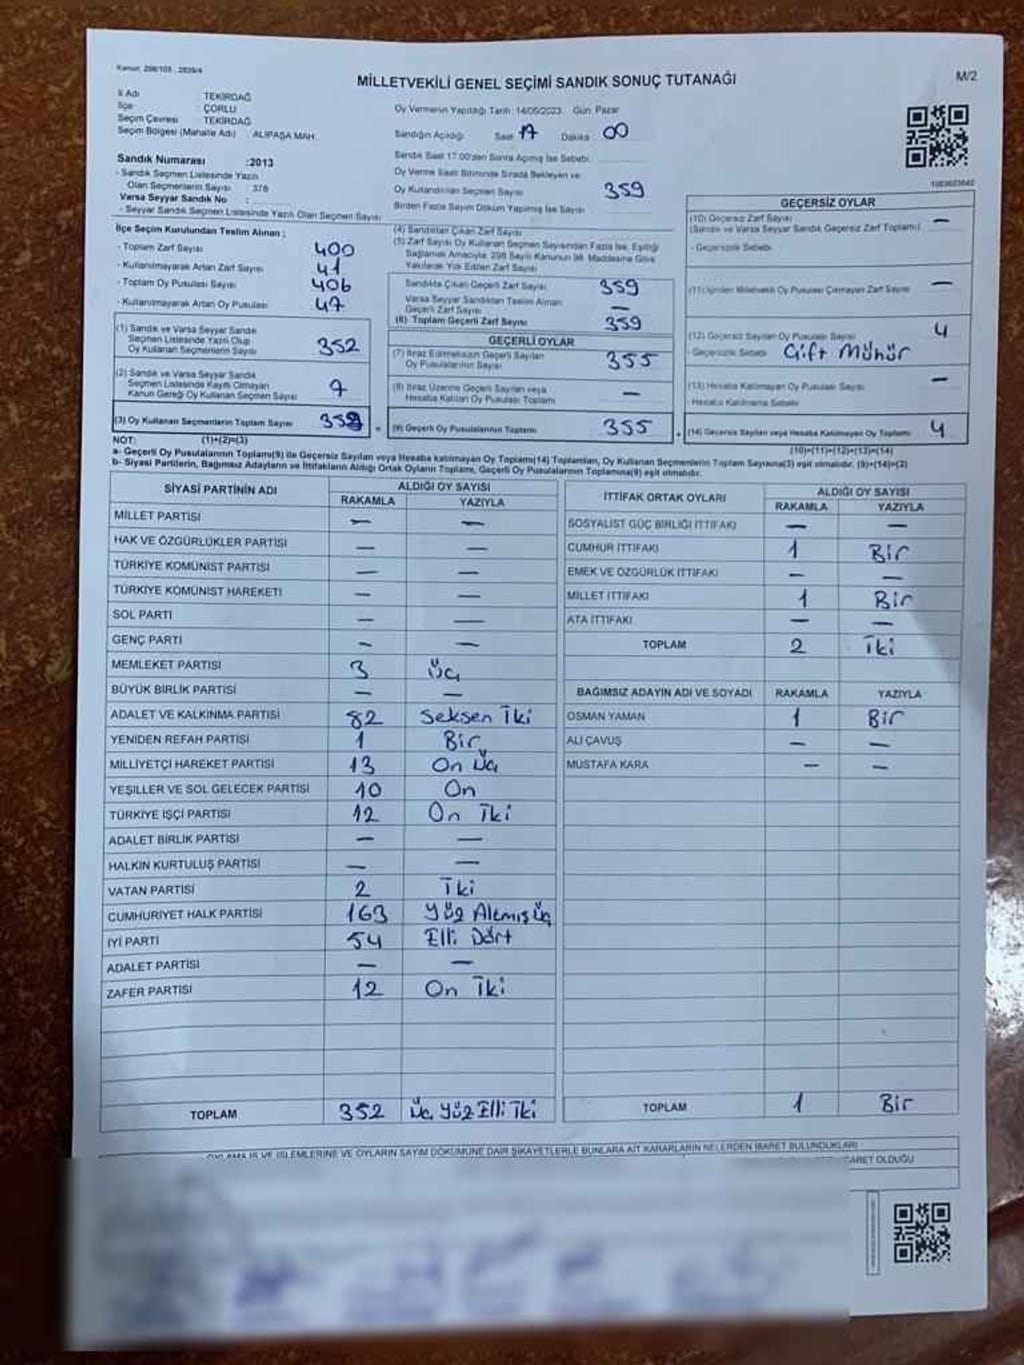 Kanun: 298/105 , 2839/4
MİLLETVEKİLİ GENEL SEÇİMİ SANDIK SONUÇ TUTANAĞI
M/2
İl Adı : TEKİRDAĞ
İlçe : ÇORLU
Seçim Çevresi : TEKİRDAĞ
Seçim Bölgesi (Mahalle Adı) : ALİPAŞA MAH.
Oy Vermenin Yapıldığı Tarih : 14/05/2023 Gün: Pazar
Sandığın Açıldığı Saat 17 Dakika : 00
Sandık Numarası :2013
- Sandık Seçmen Listesinde Yazılı
Olan Seçmenlerin Sayısı : 376
Varsa Seyyar Sandık No :
- Seyyar Sandık Seçmen Listesinde Yazılı Olan Seçmen Sayısı
Sandık Saat 17:00'den Sonra Açılmış İse Sebebi:
Oy Verme Saati Bitiminde Sırada Bekleyen ve
Oy Kullandırılan Seçmen Sayısı 359
Birden Fazla Sayım Döküm Yapılmış İse Sayısı
İlçe Seçim Kurulundan Teslim Alınan :
- Toplam Zarf Sayısı 400
- Kullanılmayarak Artan Zarf Sayısı 41
- Toplam Oy Pusulası Sayısı 406
- Kullanılmayarak Artan Oy Pusulası 47
(1) Sandık ve Varsa Seyyar Sandık
Seçmen Listesinde Yazılı Olup
Oy Kullanan Seçmenlerin Sayısı 352
(2) Sandık ve Varsa Seyyar Sandık
Seçmen Listesinde Kayıtlı Olmayan
Kanun Gereği Oy Kullanan Seçmen Sayısı 7
(3) Oy Kullanan Seçmenlerin Toplam Sayısı 359
(4) Sandıktan Çıkan Zarf Sayısı
(5) Zarf Sayısı Oy Kullanan Seçmen Sayısından Fazla İse, Eşitliği
Sağlamak Amacıyla, 298 Sayılı Kanunun 98. Maddesine Göre
Yakılarak Yok Edilen Zarf Sayısı
Sandıkta Çıkan Geçerli Zarf Sayısı 359
Varsa Seyyar Sandıktan Teslim Alınan
Geçerli Zarf Sayısı —
(6) Toplam Geçerli Zarf Sayısı 359
GEÇERLİ OYLAR
(7) İtiraz Edilmeksizin Geçerli Sayılan
Oy Pusulalarının Sayısı 355
(8) İtiraz Üzerine Geçerli Sayılan veya
Hesaba Katılan Oy Pusulası Toplamı —
(9) Geçerli Oy Pusulalarının Toplamı 355
1083623642
GEÇERSİZ OYLAR
(10) Geçersiz Zarf Sayısı —
(Sandık ve Varsa Seyyar Sandık Geçersiz Zarf Toplamı)
- Geçersizlik Sebebi
(11) İçinden Milletvekili Oy Pusulası Çıkmayan Zarf Sayısı —
(12) Geçersiz Sayılan Oy Pusulası Sayısı 4
- Geçersizlik Sebebi Çift Mühür
(13) Hesaba Katılmayan Oy Pusulası Sayısı —
- Hesaba Katılmama Sebebi
(14) Geçersiz Sayılan veya Hesaba Katılmayan Oy Toplamı 4
NOT: (1)+(2)=(3)
(10)+(11)+(12)+(13)=(14)
a- Geçerli Oy Pusulalarının Toplamı(9) ile Geçersiz Sayılan veya Hesaba katılmayan Oy Toplamı(14) Toplamları, Oy Kullanan Seçmenlerin Toplam Sayısına(3) eşit olmalıdır. (9)+(14)=(3)
b- Siyasi Partilerin, Bağımsız Adayların ve İttifakların Aldığı Ortak Oyların Toplamı, Geçerli Oy Pusulalarının Toplamına(9) eşit olmalıdır.
SİYASİ PARTİNİN ADI ALDIĞI OY SAYISI
RAKAMLA YAZIYLA
MİLLET PARTİSİ — —
HAK VE ÖZGÜRLÜKLER PARTİSİ — —
TÜRKİYE KOMÜNİST PARTİSİ — —
TÜRKİYE KOMÜNİST HAREKETİ — —
SOL PARTİ — —
GENÇ PARTİ — —
MEMLEKET PARTİSİ 3 Üç
BÜYÜK BİRLİK PARTİSİ — —
ADALET VE KALKINMA PARTİSİ 82 Seksen İki
YENİDEN REFAH PARTİSİ 1 Bir
MİLLİYETÇİ HAREKET PARTİSİ 13 On Üç
YEŞİLLER VE SOL GELECEK PARTİSİ 10 On
TÜRKİYE İŞÇİ PARTİSİ 12 On İki
ADALET BİRLİK PARTİSİ — —
HALKIN KURTULUŞ PARTİSİ — —
VATAN PARTİSİ 2 İki
CUMHURİYET HALK PARTİSİ 163 Yüz Altmış Üç
İYİ PARTİ 54 Elli Dört
ADALET PARTİSİ — —
ZAFER PARTİSİ 12 On İki
TOPLAM 352 Üç Yüz Elli İki
İTTİFAK ORTAK OYLARI ALDIĞI OY SAYISI
RAKAMLA YAZIYLA
SOSYALİST GÜÇ BİRLİĞİ İTTİFAKI — —
CUMHUR İTTİFAKI 1 Bir
EMEK VE ÖZGÜRLÜK İTTİFAKI — —
MİLLET İTTİFAKI 1 Bir
ATA İTTİFAKI — —
TOPLAM 2 İki
BAĞIMSIZ ADAYIN ADI VE SOYADI RAKAMLA YAZIYLA
OSMAN YAMAN 1 Bir
ALİ ÇAVUŞ — —
MUSTAFA KARA — —
TOPLAM 1 Bir
OYLAMA İŞ VE İŞLEMLERİNE VE OYLARIN SAYIM DÖKÜMÜNE DAİR ŞİKAYETLERLE BUNLARA AİT KARARLARIN NELERDEN İBARET BULUNDUKLARI
OLDUĞU